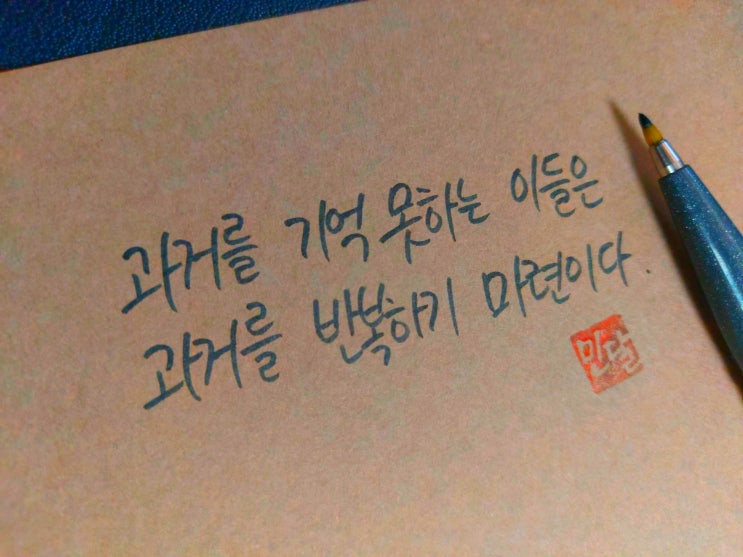 과거를 기억 못하는 이들은
과거를 반복하기 마련이다.
민달